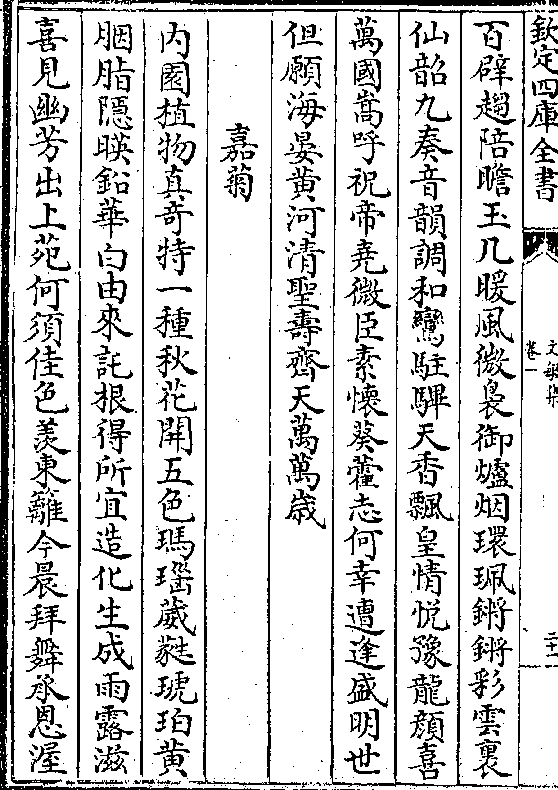 欽定四庫全書
卷一
百辟趨陪瞻玉几暖風微裊御爐烟環珮鏘鏘彩雲裏
仙韶九奏音韻調和鸞駐驆天香飄皇情悅豫龍顔喜
萬國嵩呼祝帝堯微臣素懷葵藿志何幸遭逢盛明世
但願海晏黄河清聖壽齊天萬萬歳
嘉菊
内園植物真奇特一種秋花開五色瑪瑙葳蕤琥珀黄
胭脂隱暎鉛華白由來託根得所宜造化生成雨露滋
喜見幽芳出上苑何須佳色羡東籬今晨拜舞承恩渥